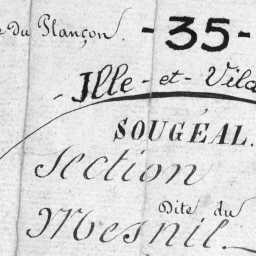 Du Plançon.
-35-
Ille-et-Vila
SOUGÉAL.
Section
Dite du
Mesnil.